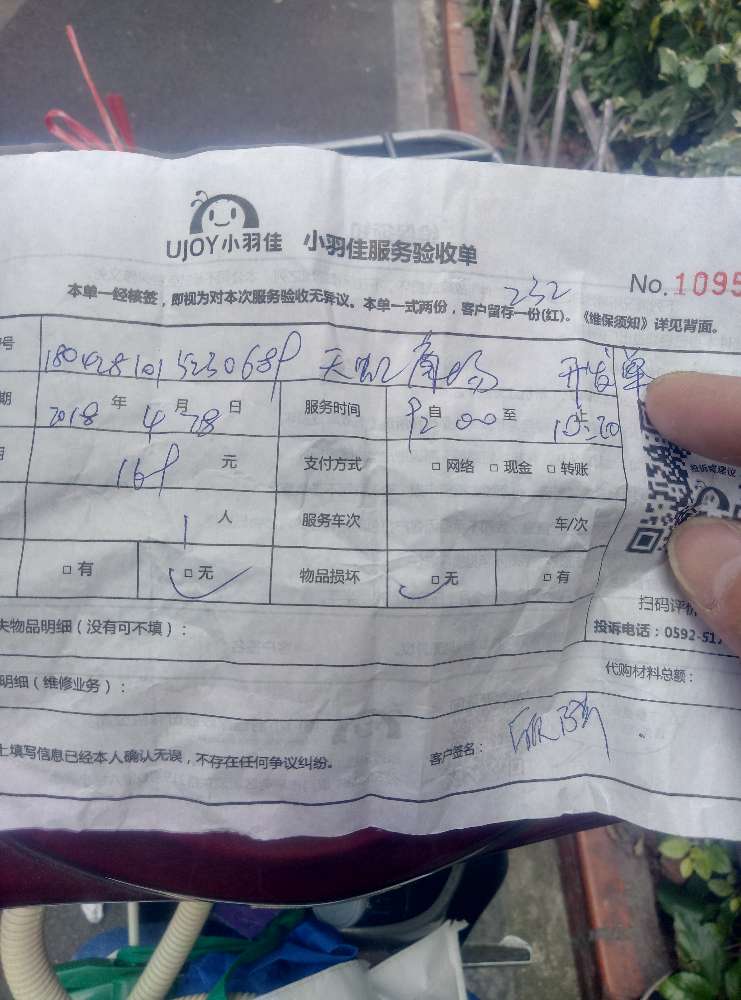 UJOY小羽佳 小羽佳服务验收单
No.1095
232
本单一经核签，即视为对本次服务验收无异议。本单一式两份，客户留存一份(红)。《维保须知》详见背面。
号 天凯 单
期 2018 年 4 月 28 日 服务时间 自 至
169 元 支付方式 □ 网络 □ 现金 □ 转账
1 人 服务车次 车/次
□ 有 □ 无 物品损坏 □ 无 □ 有
投诉或建议
扫码评价
投诉电话：0592-517
失物品明细（没有可不填）：
代购材料总额：
明细（维修业务）：
上填写信息已经本人确认无误，不存在任何争议纠纷。 客户签名：